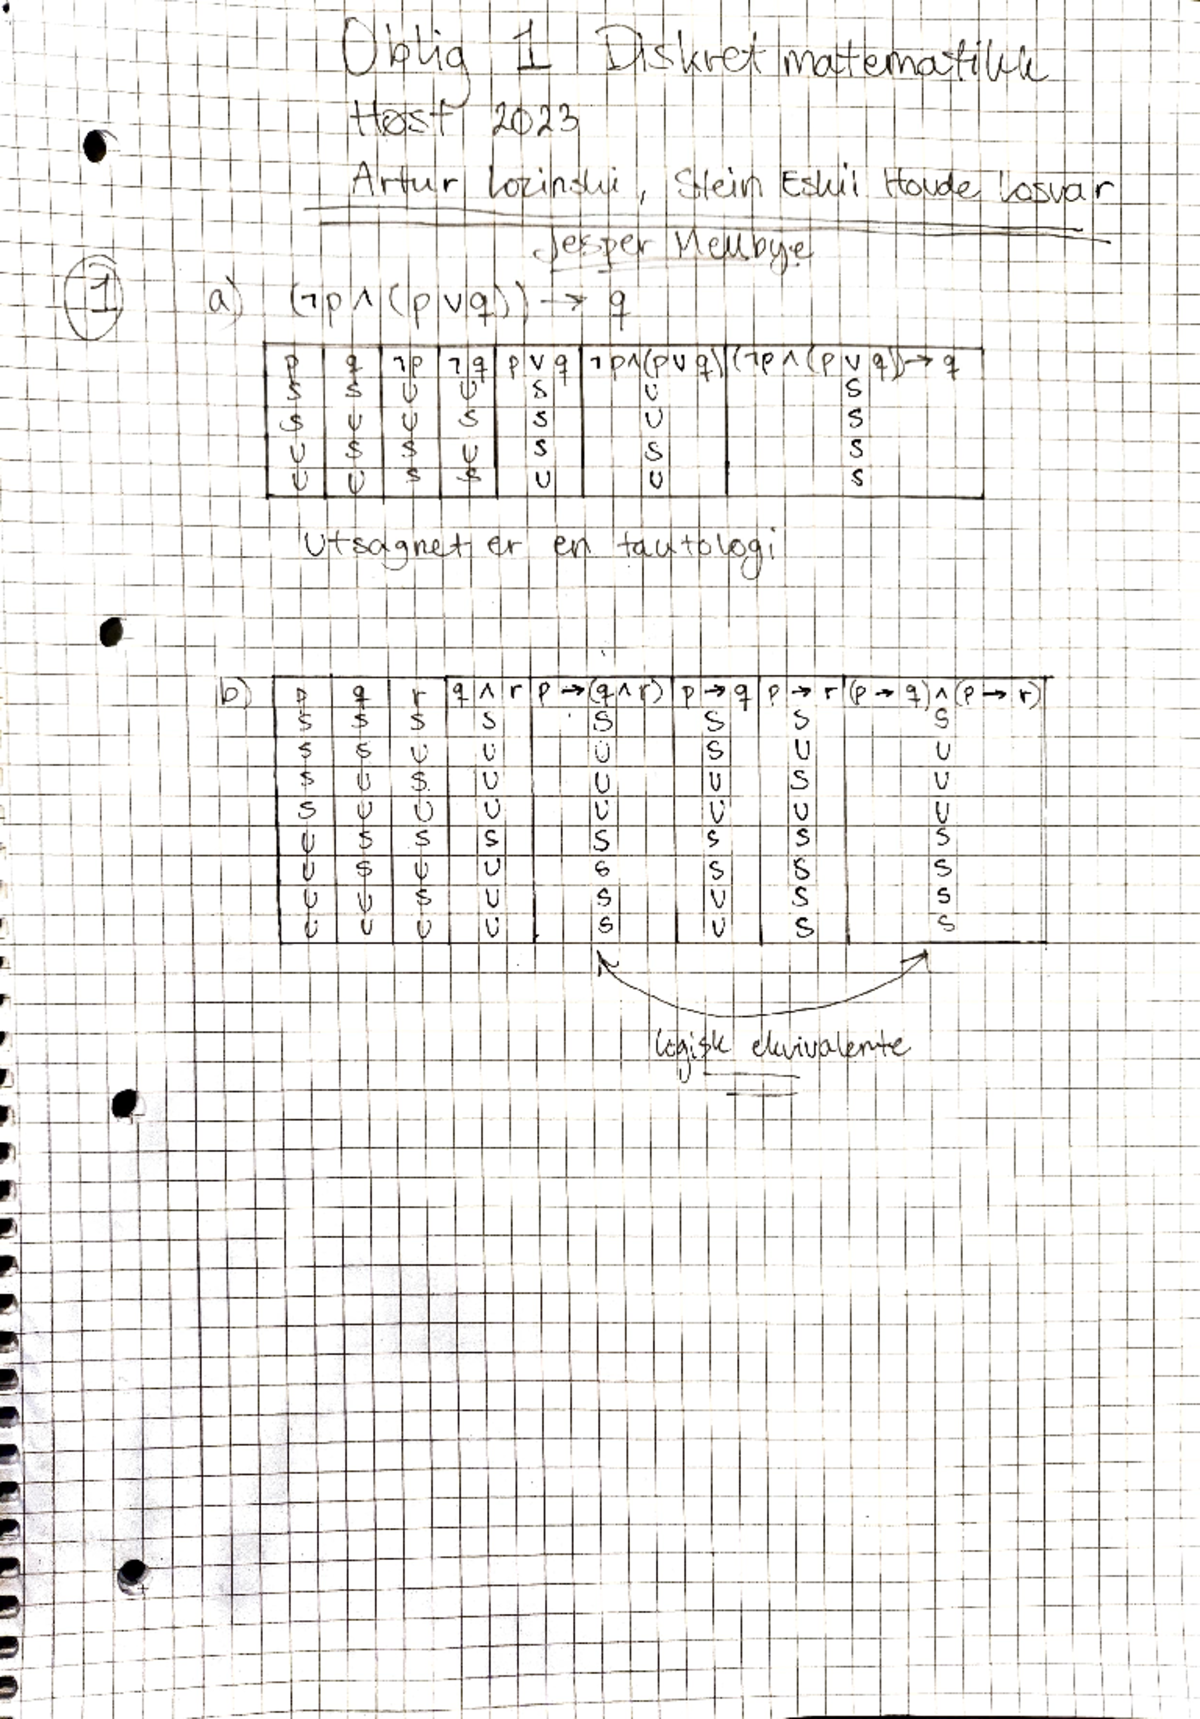 Oblig 1 Diskret matematikk
Høst 2023
Artur Lozinski, Stein Eskil Hovde Losvar
Jesper Mellbye
1 a) (¬p ∧ (p ∨ q)) → q
p q ¬p ¬q p ∨ q ¬p∧(p ∨ q) (¬p ∧ (p ∨ q)) → q
S S U U S U S
S U U S S U S
U S S U S S S
U U S S U U S
Utsagnet er en tautologi
b) p q r q ∧ r p → (q ∧ r) p → q p → r (p → q) ∧ (p → r)
S S S S S S S S
S S U U U S U U
S U S U U U S U
S U U U U U U U
U S S S S S S S
U S U U S S S S
U U S U S U S S
U U U U S U S S
logisk ekvivalente